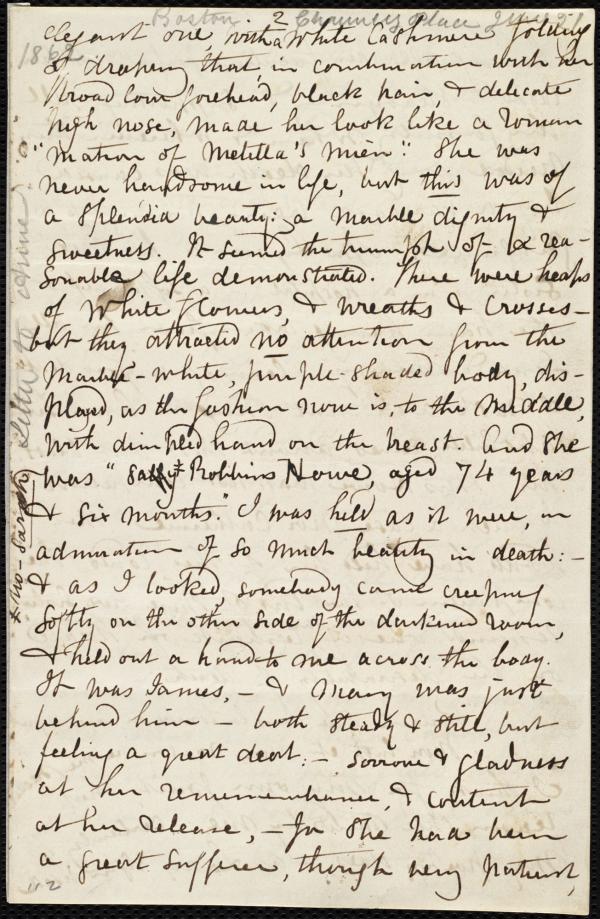 Boston 2 Chauncy Place
1862
elegant one, with a white Cashmere folding
& drapery, that, in combination with her
broad low forehead, black hair, & delicate
high nose, made her look like a Roman
"matron of Metilla's mien." She was
never handsome in life, but this was of
a splendid beauty: a marble dignity &
sweetness. It seemed the triumph of a rea-
sonable life demonstrated. There were heaps
of white flowers, & wreaths & crosses -
but they attracted no attention from the
marble-white, purple-shaded body, dis-
played, as the fashion now is, to the middle,
with dimpled hand on the breast. And she
was "Sally ‡ Robbins Howe, aged 74 years
& six months." I was held as it were, in
admiration of so much beauty in death: -
& as I looked, somebody came creeping
softly on the other side of the darkened room,
& held out a hand to me across the body.
It was James, - & Mary was just
behind him - both steady & still, but
feeling a great deal: - sorrow & gladness
at her remembrance, & content
at her release, - for she had been
a great sufferer, though very patient,
‡ no - Sarah
Letter to
"2